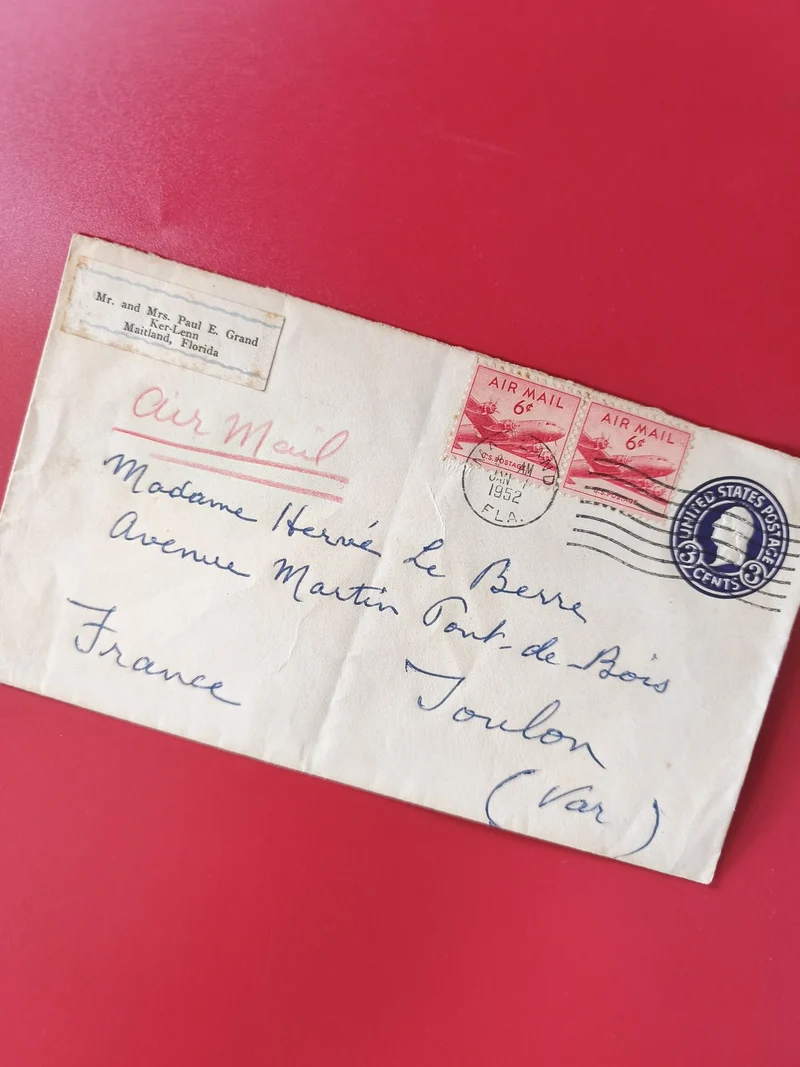 Mr. and Mrs. Paul E. Grand
Ker-Lenn
Maitland, Florida
Air Mail
AIR MAIL
6¢
U.S. POSTAGE
AIR MAIL
6¢
U.S. POSTAGE
AM
JAN
1952
FLA.
UNITED STATES POSTAGE
3 CENTS 3
Madame Hervé Le Berre
Avenue Martin Pont-de-Bois
Toulon
(Var)
France